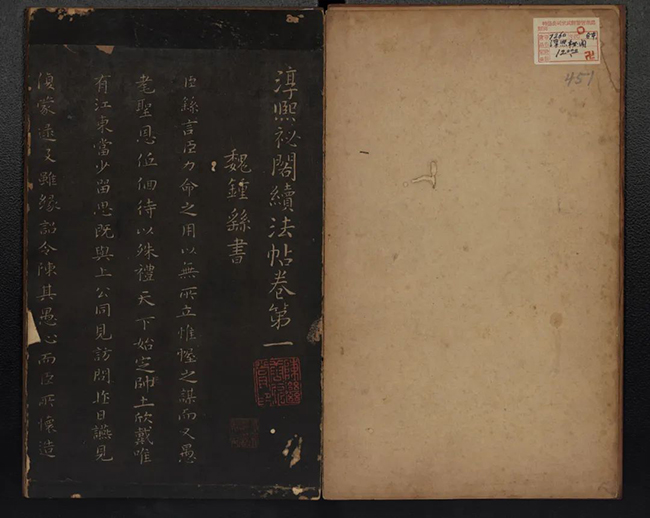 451
淳熙祕閣續法帖卷第一
魏鍾繇書
臣繇言臣力命之用以無所立惟幄之謀而又愚
耄聖恩低佪待以殊禮天下始定帥土欣戴唯
有江東當少留思既與上公同見訪問昨日讌見
復蒙逮及雖緣詔令陳其愚心而臣所懷造